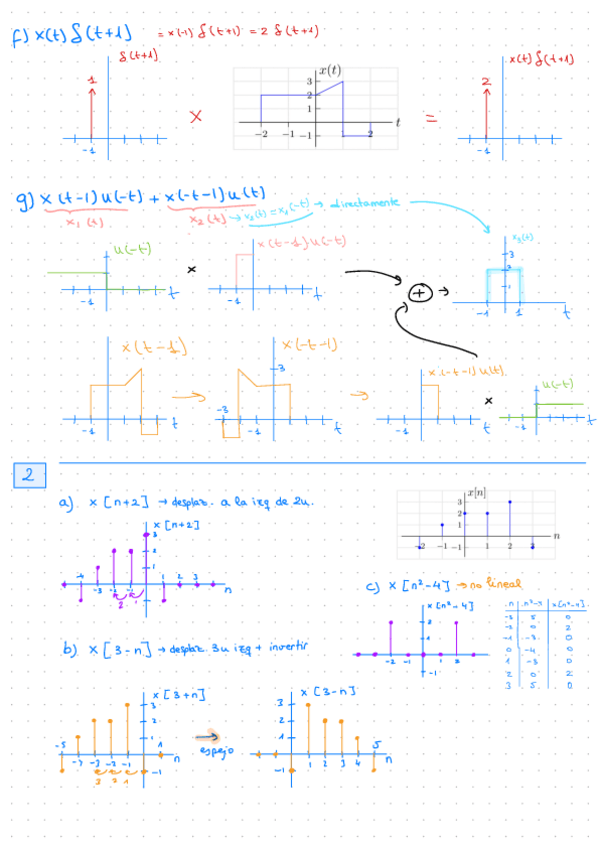 f) x(t) δ(t+1) = x(-1) δ(t+1) = 2 δ(t+1)
δ(t+1)
1
-1
×
x(t)
3
2
1
-1
-2 -1 1 2
t
=
x(t) δ(t+1)
2
-1
g) x(t-1) u(-t) + x(-t-1) u(t)
x₁(t)
x₂(t) → x₂(t) = x₁(-t) → directamente
u(-t)
-1
t
×
x(t-1) u(-t)
-1
t
+
x₃(t)
3
2
1
-1 1
t
x(t-1)
-1
t
x(-t-1)
3
-3
-1
t
x(-t-1) u(t)
-1
t
×
u(-t)
-1
t
2
a) x[n+2] → desplaz. a la izq de 2u.
x[n+2]
3
2
1
-4 -3 -2 -1 1 2 3
n
2 1
x[n]
3
2
1
-2 -1 -1 1 2 3
n
c) x[n²-4] → no lineal
x[n²-4]
2
-2 -1 1 2
n
-1
n n²-4 x[n²-4]
-3 5 0
-2 0 2
-1 -3 0
0 -4 0
1 -3 0
2 0 2
3 5 0
b) x[3-n] → desplaz. 3u izq + invertir
x[3+n]
3
2
1
-5 -3 -2 -1 1
n
-1
3 2 1
espejo
x[3-n]
3
2
1
-1
1 2 3 4 5
n